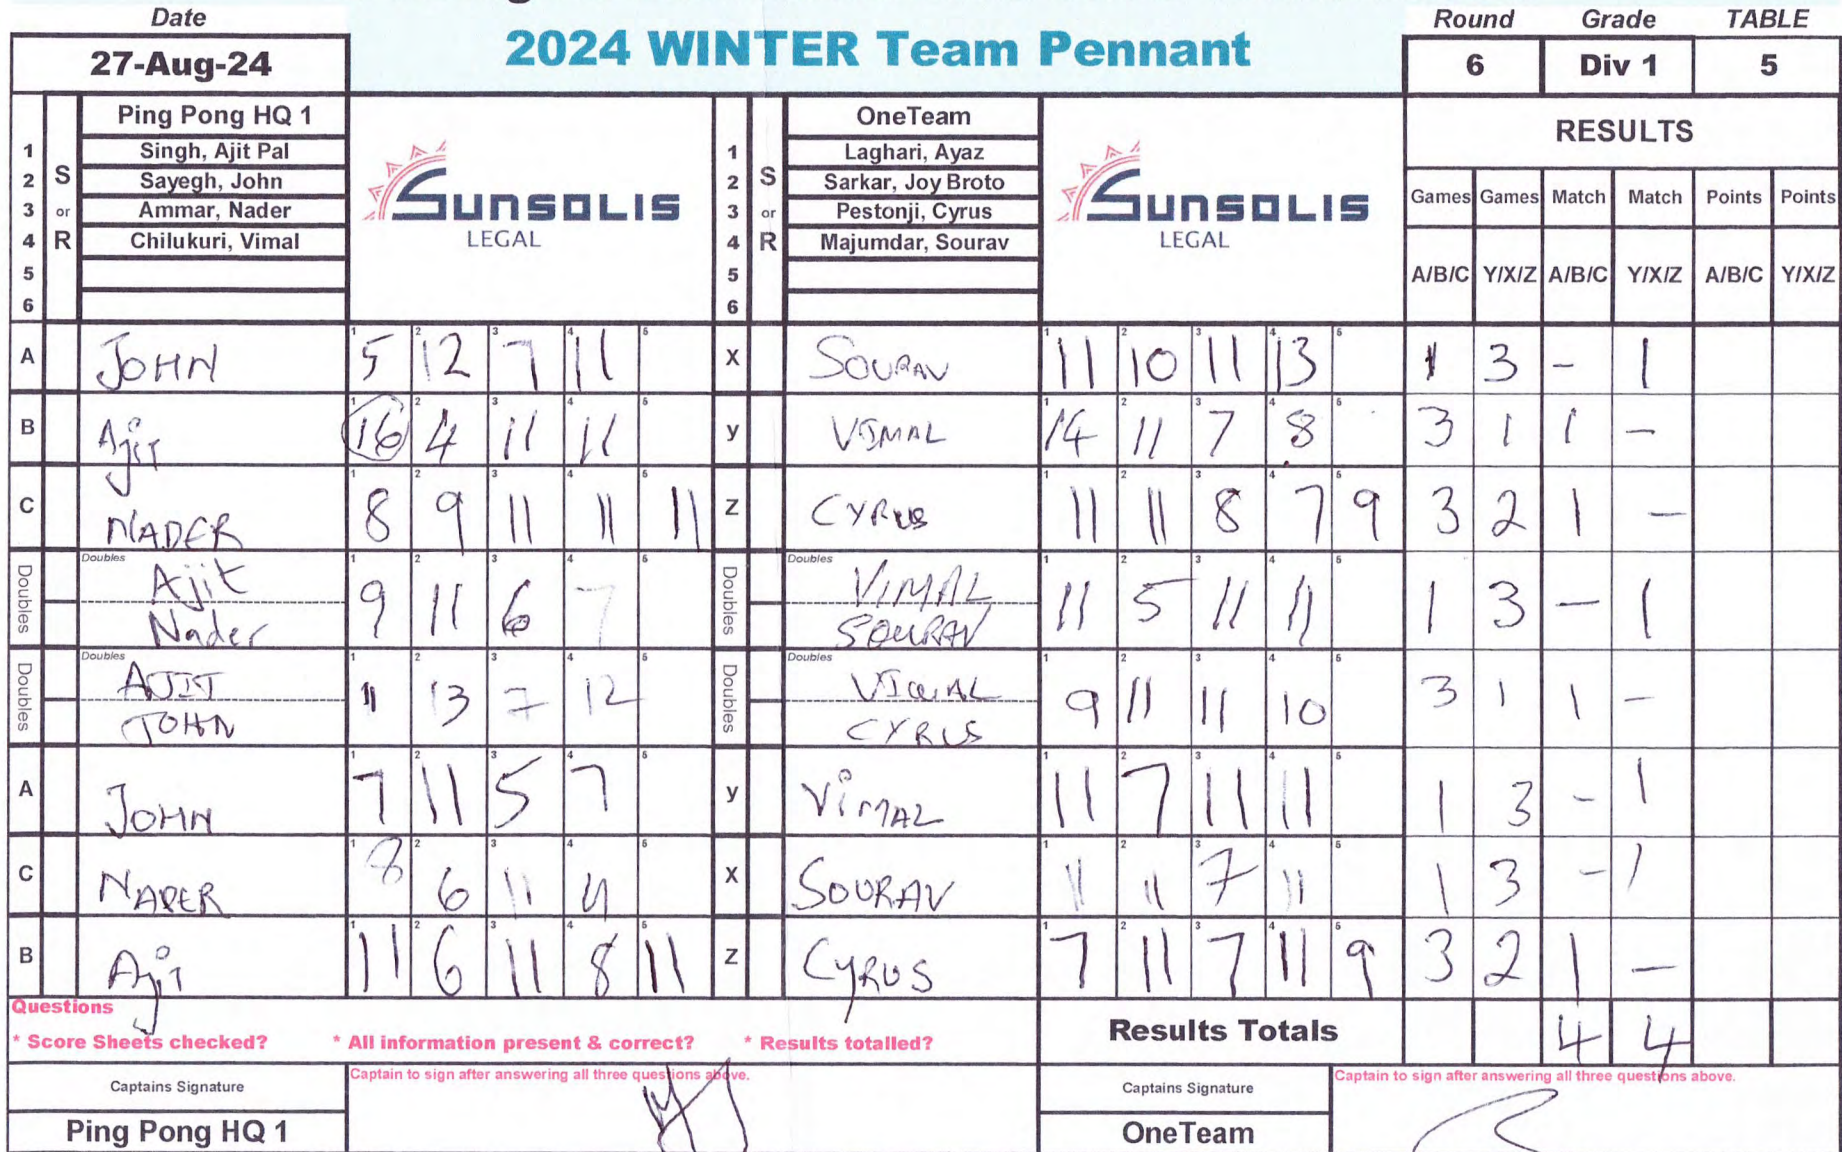 Date
27-Aug-24
2024 WINTER Team Pennant
Round Grade TABLE
6 Div 1 5
S or R
Ping Pong HQ 1
1 Singh, Ajit Pal
2 Sayegh, John
3 Ammar, Nader
4 Chilukuri, Vimal
5
6
SUNSOLIS
LEGAL
S or R
OneTeam
1 Laghari, Ayaz
2 Sarkar, Joy Broto
3 Pestonji, Cyrus
4 Majumdar, Sourav
5
6
SUNSOLIS
LEGAL
RESULTS
Games Games Match Match Points Points
A/B/C Y/X/Z A/B/C Y/X/Z A/B/C Y/X/Z
A JOHN 5 12 7 11 X SOURAV 11 10 11 13 1 3 - 1
B Ajit 16 4 11 11 y VIMAL 14 11 7 8 3 1 1 -
C NADER 8 9 11 11 11 Z CYRUS 11 11 8 7 9 3 2 1 -
Doubles Doubles Ajit 9 11 6 7 Doubles Doubles VIMAL 11 5 11 11 1 3 - 1
Nader SOURAV
Doubles Doubles AJIT 11 13 7 12 Doubles Doubles VIMAL 9 11 11 10 3 1 1 -
JOHN CYRUS
A JOHN 7 11 5 7 y VIMAL 11 7 11 11 1 3 - 1
C NADER 8 6 11 X SOURAV 11 11 7 11 1 3 - 1
B Ajit 11 6 11 8 11 Z CYRUS 7 11 7 11 9 3 2 1 -
Questions
* Score Sheets checked? * All information present & correct? * Results totalled?
Results Totals 4 4
Captains Signature
Captain to sign after answering all three questions above.
Captains Signature
Captain to sign after answering all three questions above.
Ping Pong HQ 1
OneTeam